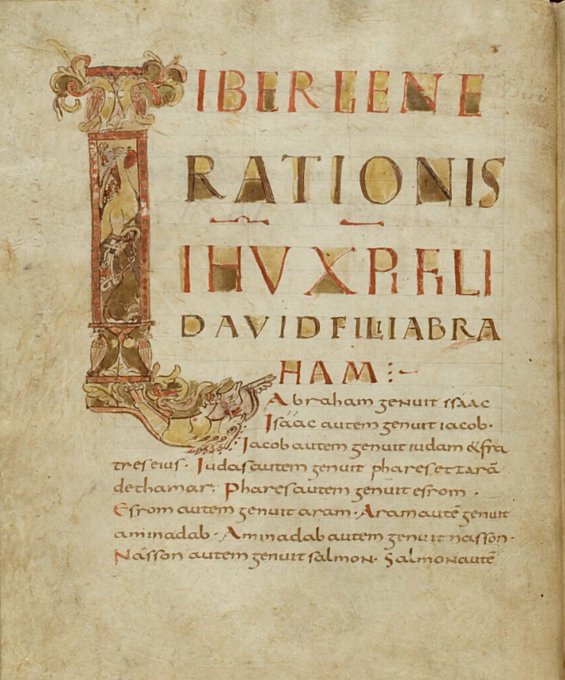 LIBER GENE
RATIONIS
IHU XPI FILI
DAVID FILII ABRA
HAM
Abraham genuit isaac
Isaac autem genuit iacob·
Iacob autem genuit iudam & fra
tres eius· Iudas autem genuit phares et zarā
de thamar; Phares autem genuit esrom·
Esrom autem genuit aram· Aram autē genuit
aminadab· Aminadab autem genuit nasson·
Nasson autem genuit salmon· Salmon autē